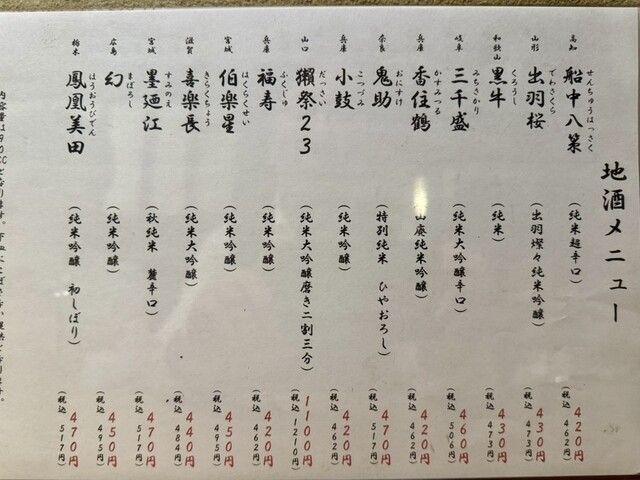 地酒メニュー
高知 船中八策 せんちゅうはっさく (純米超辛口) 420円 (税込 462円)
山形 出羽桜 でわざくら (出羽燦々純米吟醸) 430円 (税込 473円)
和歌山 黒牛 くろうし (純米) 430円 (税込 473円)
岐阜 三千盛 みちさかり (純米大吟醸辛口) 460円 (税込 506円)
兵庫 香住鶴 かすみつる (山廃純米吟醸) 420円 (税込 462円)
奈良 鬼助 おにすけ (特別純米 ひやおろし) 470円 (税込 517円)
兵庫 小鼓 こつづみ (純米吟醸) 420円 (税込 462円)
山口 獺祭23 だっさい (純米大吟醸磨き二割三分) 1100円 (税込 1210円)
兵庫 福寿 ふくじゅ (純米吟醸) 420円 (税込 462円)
宮城 伯楽星 はくらくせい (純米吟醸) 450円 (税込 495円)
滋賀 喜楽長 きらくちょう (純米大吟醸) 440円 (税込 484円)
宮城 墨廼江 すみのえ (秋純米 辛口) 470円 (税込 517円)
広島 幻 まぼろし (純米吟醸) 450円 (税込 495円)
栃木 鳳凰美田 ほうおうびでん (純米吟醸 初しぼり) 470円 (税込 517円)
内容量は90CCとなります。